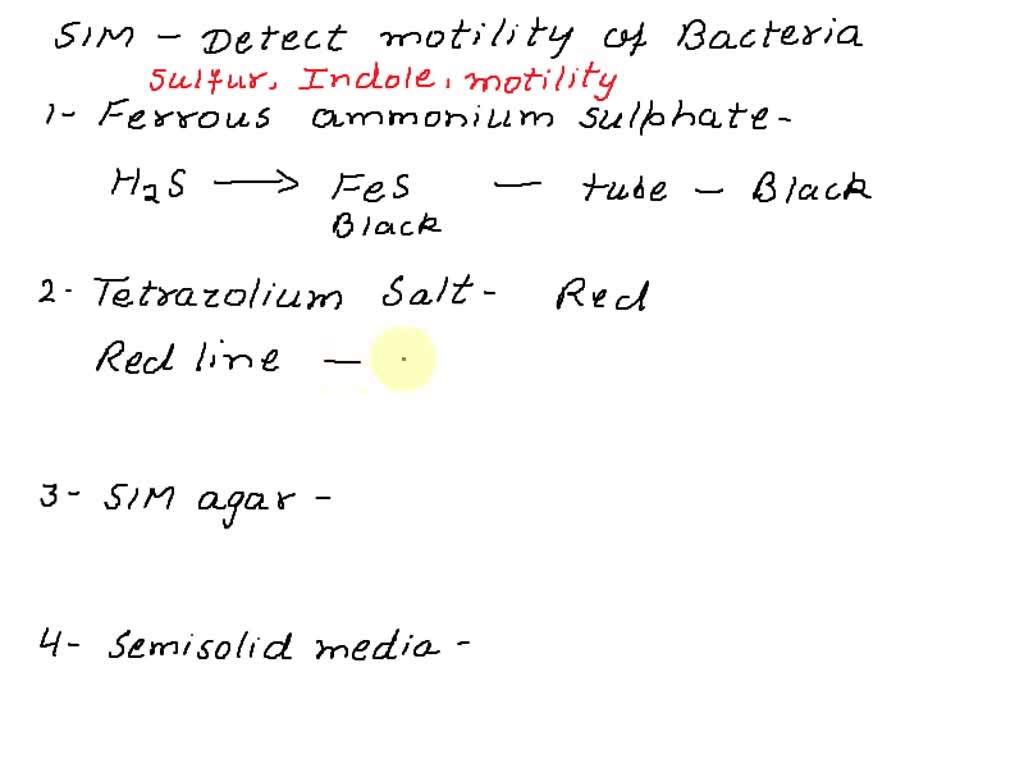 SIM - Detect motility of Bacteria
Sulfur, Indole, motility
1- Ferrous ammonium sulphate-
H₂S → FeS - tube - Black
Black
2- Tetrazolium Salt- Red
Red line -
3- SIM agar -
4- Semisolid media -